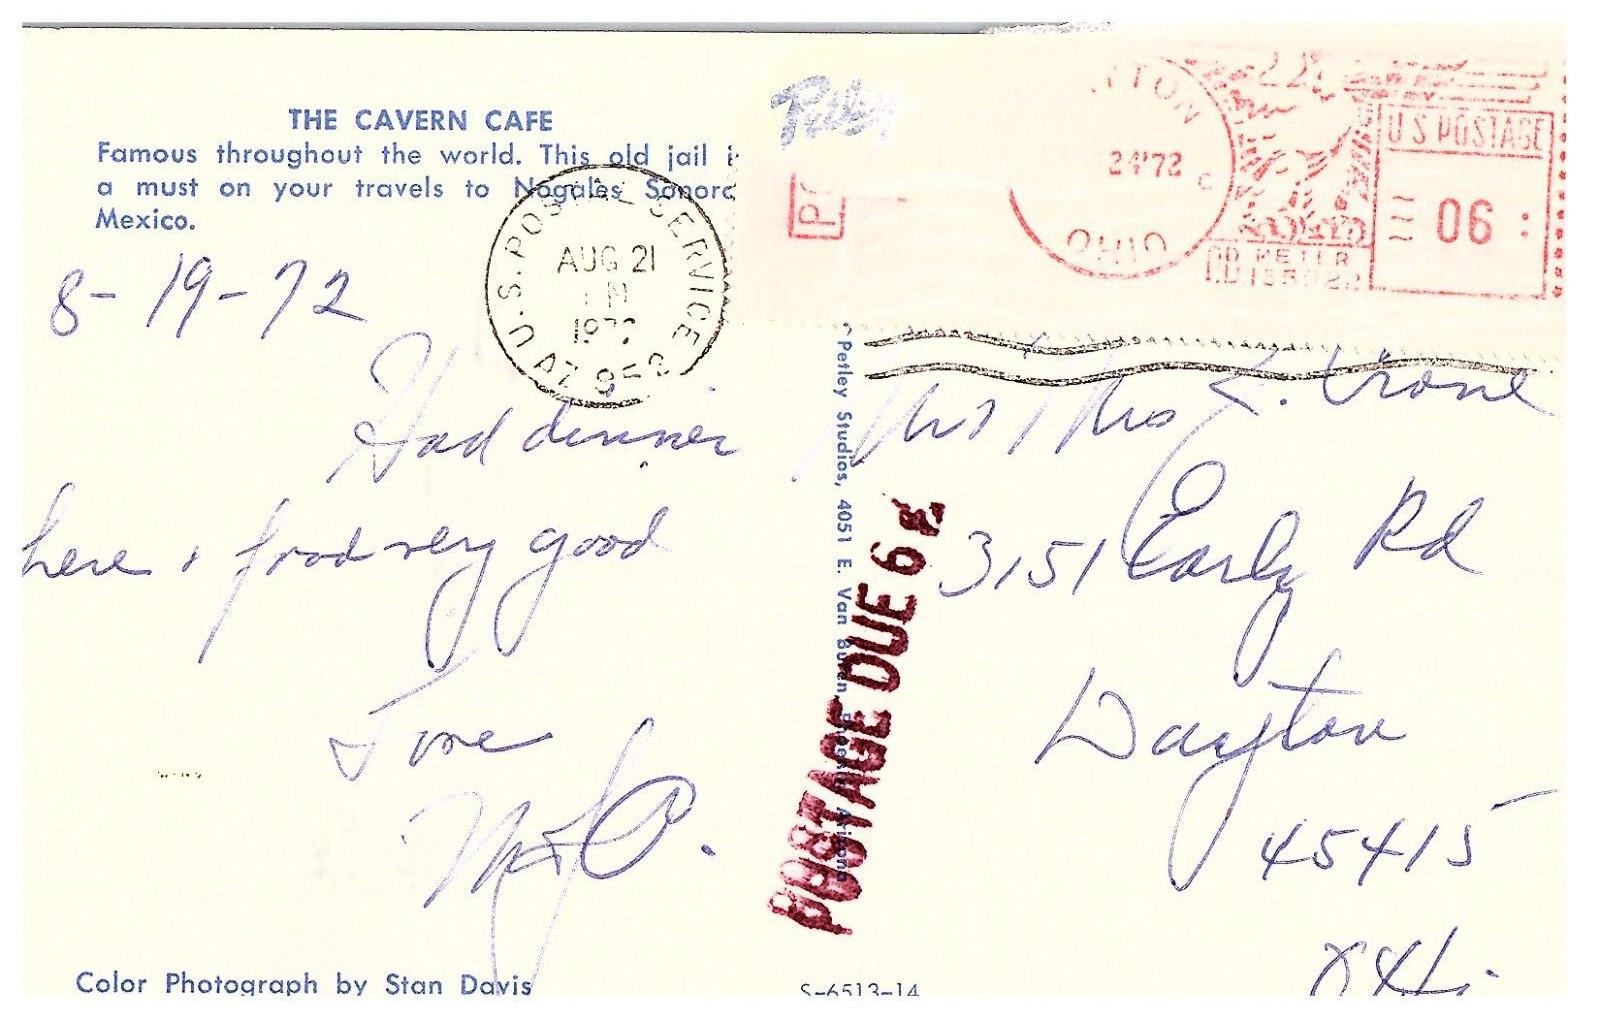 THE CAVERN CAFE
Famous throughout the world. This old jail i
a must on your travels to Nogales Sonora
Mexico.
8-19-72
Had dinner
here & food very good
Love
Color Photograph by Stan Davis
U.S. POSTAL SERVICE
AUG 21
PM
1972
AZ 852
Petley
TON
24'72
OHIO
U S POSTAGE
06
P.B. METER
Petley Studios, 4051 E. Van Buren, Phoenix, Arizona
POSTAGE DUE 6¢
Mr & Mrs
3151 Early Rd
Dayton
45415
S-6513-14